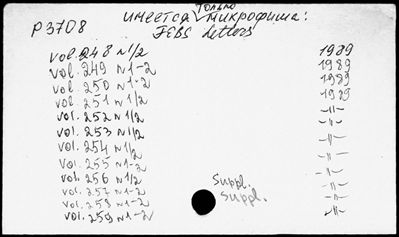 только
P3708 имеется микрофиша:
FEBS Letters
vol. 248 N1/2 1989
vol. 249 N1-2 1989
vol. 250 N1-2 1989
vol. 251 N1/2 1989
vol. 252 N1/2 -"-
vol. 253 N1/2 -"-
vol. 254 N1/2 -"-
vol. 255 N1-2 -"-
vol. 256 N1/2 Suppl. -"-
vol. 257 N1-2 Suppl. -"-
vol. 258 N1-2 -"-
vol. 259 N1-2 -"-